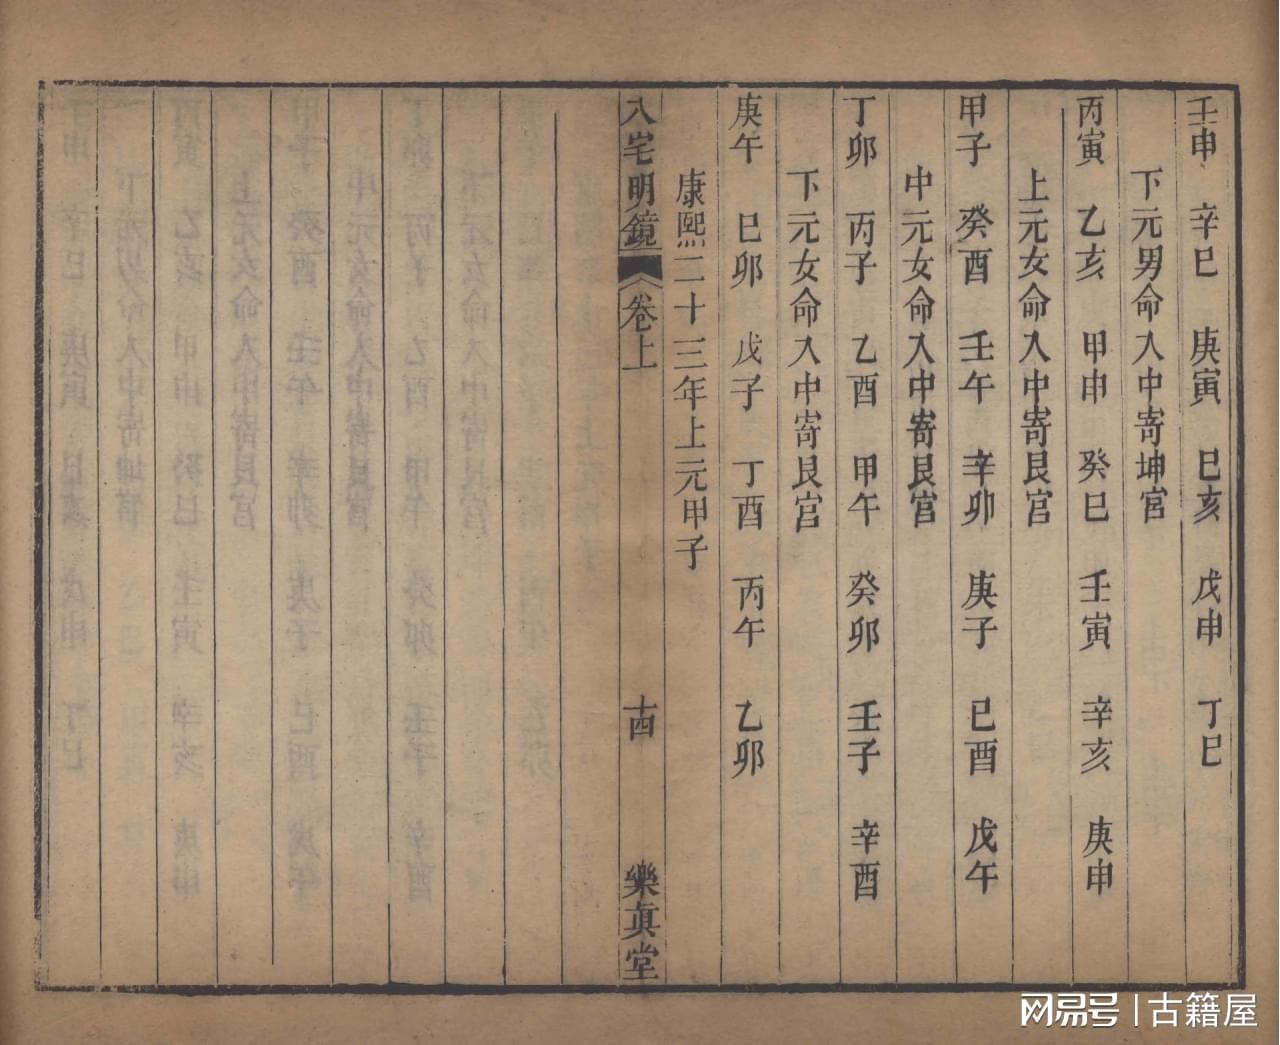 壬申 辛巳 庚寅 巳亥 戊申 丁巳
下元男命入中寄坤宮
丙寅 乙亥 甲申 癸巳 壬寅 辛亥 庚申
上元女命入中寄艮宮
甲子 癸酉 壬午 辛卯 庚子 巳酉 戊午
中元女命入中寄艮宮
丁卯 丙子 乙酉 甲午 癸卯 壬子 辛酉
下元女命入中寄艮宮
庚午 巳卯 戊子 丁酉 丙午 乙卯
康熙二十三年上元甲子
八宅明鏡 卷上 十四 樂眞堂
网易号 | 古籍屋